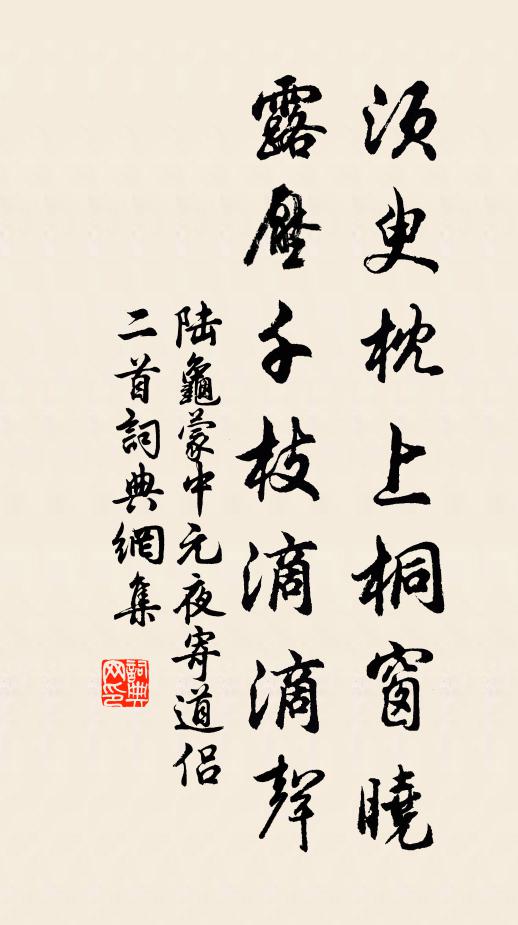 須臾枕上桐窗曉
露壓千枝滴滴聲
陆龜蒙中元夜寄道侣
二首詞典網集
詞典网印